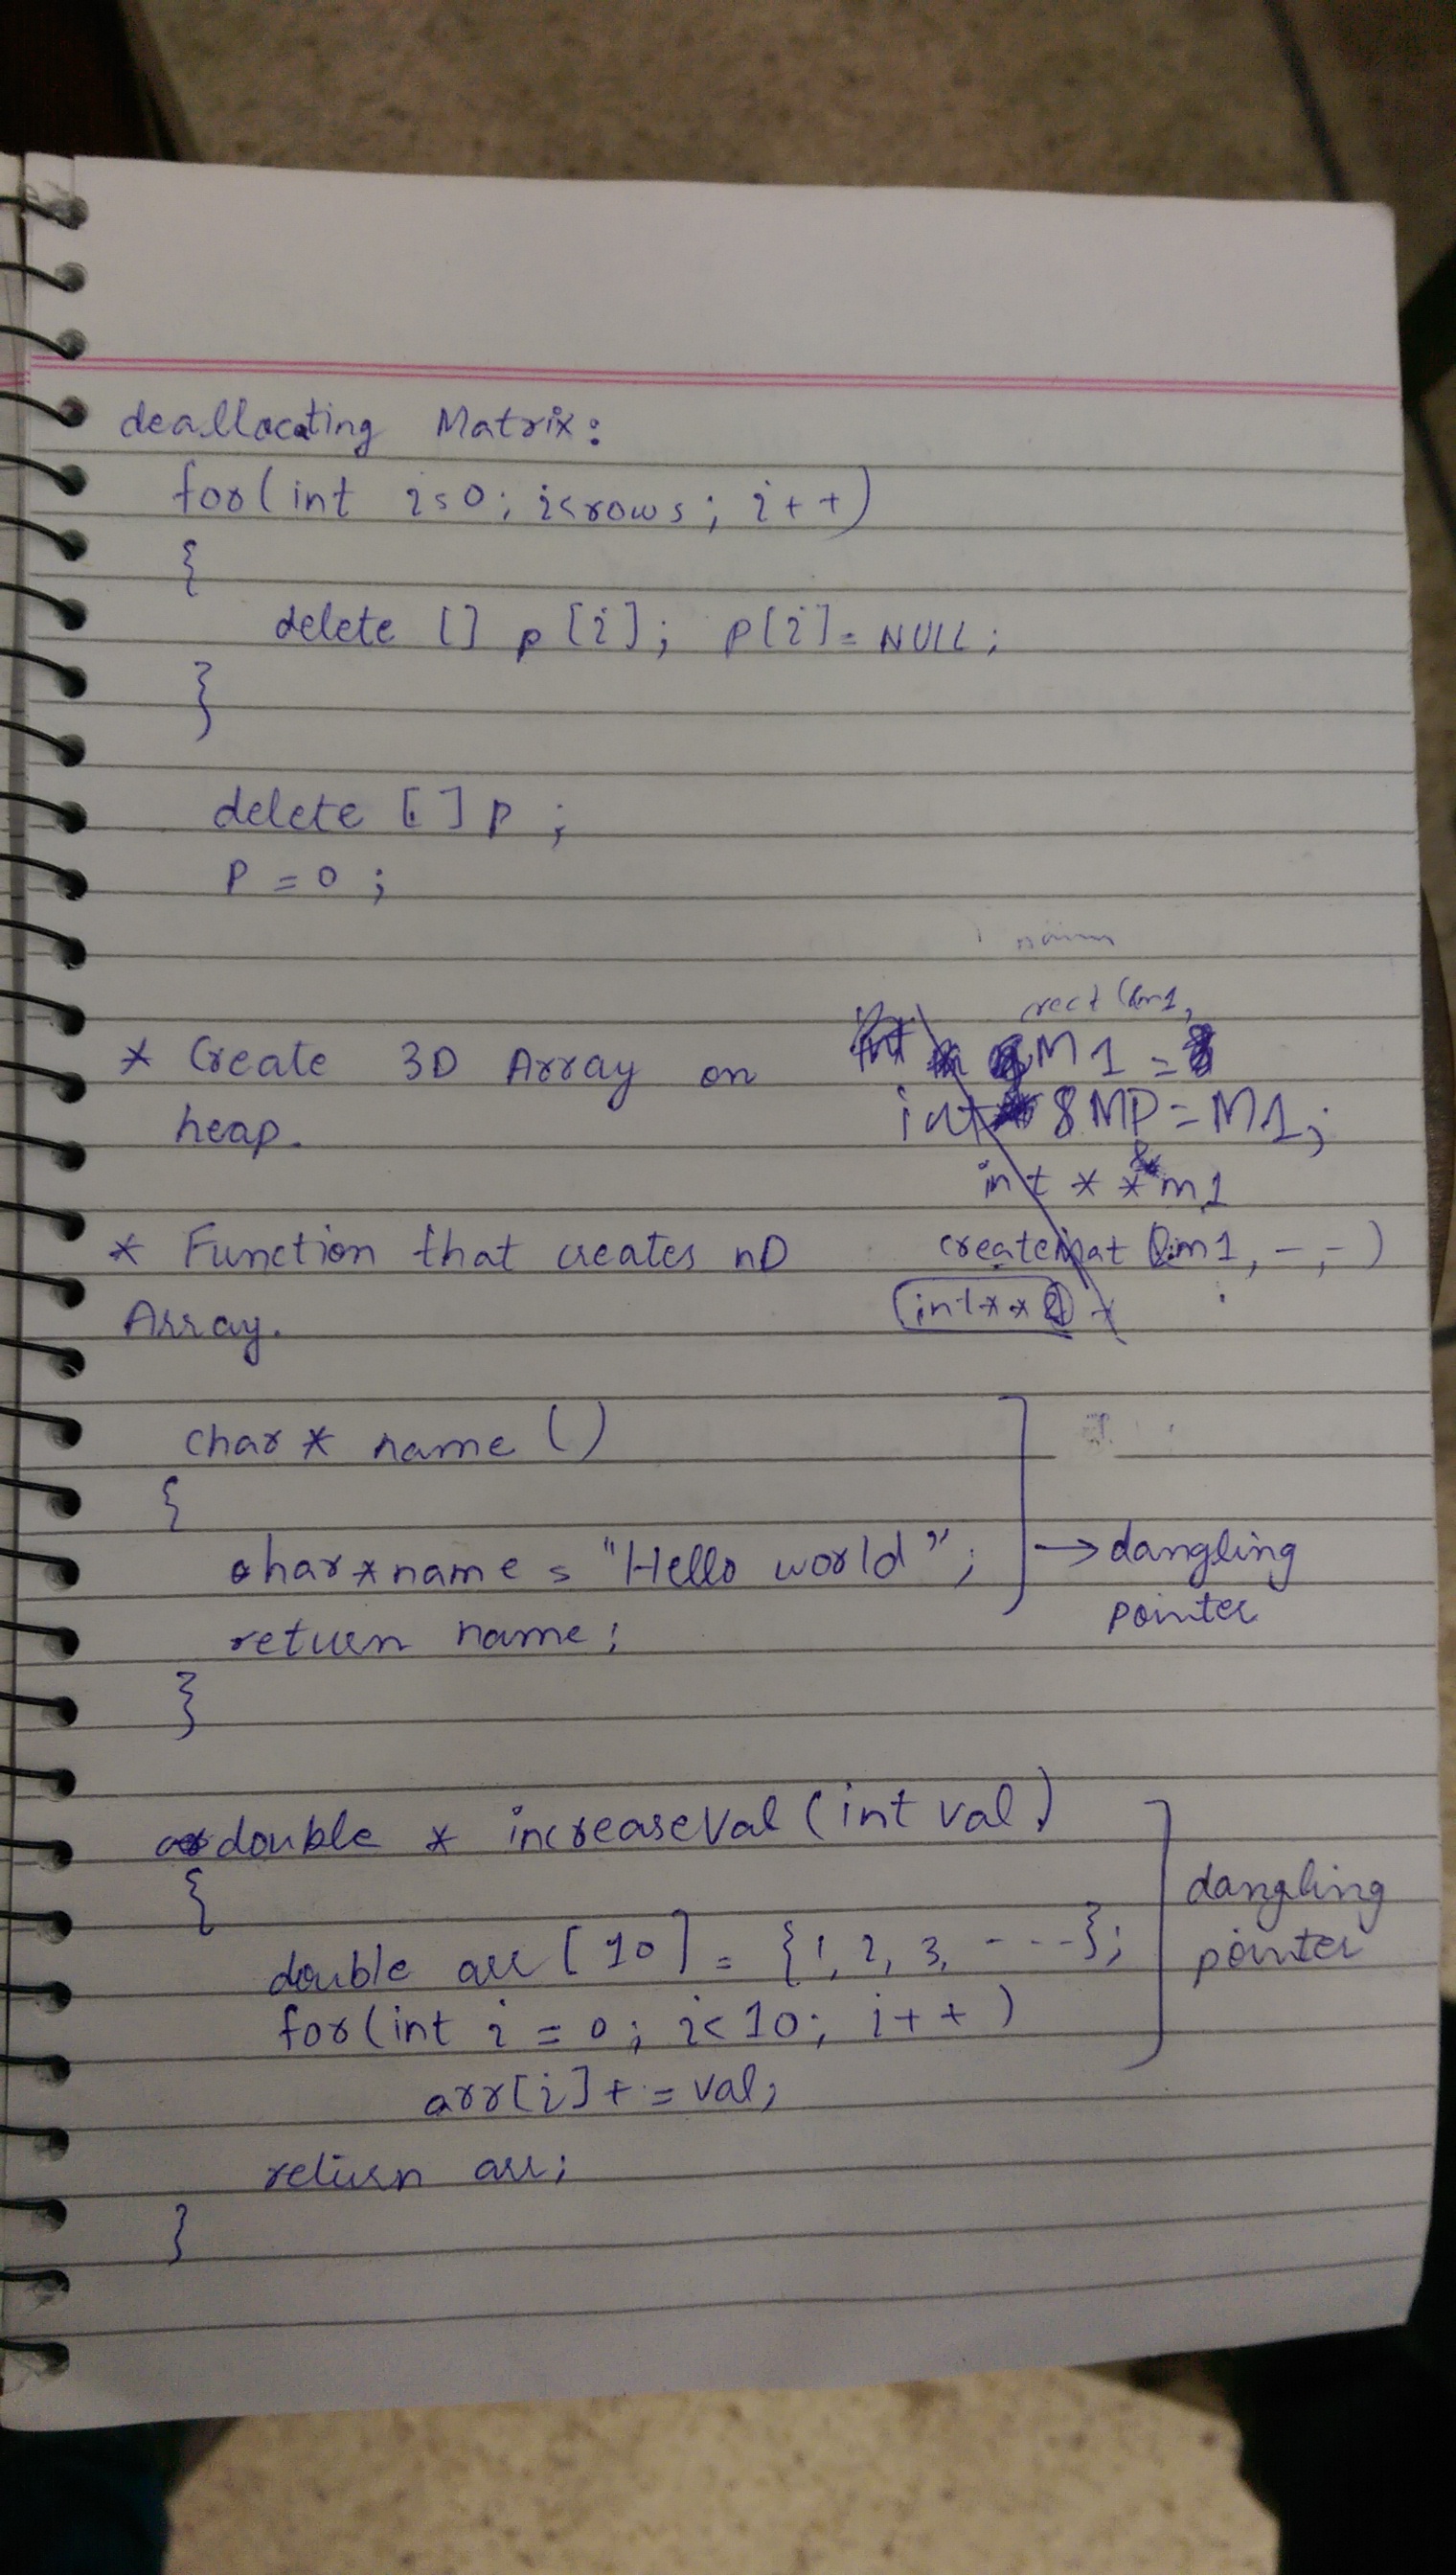 deallocating Matrix:
for(int i=0; i<rows; i++)
{
delete [] p[i]; p[i]=NULL;
}
delete [] p;
P=0;
* Create 3D Array on
heap.
M1 =
int &MP=M1;
int * * m1
* Function that creates nD
Array.
createMat (&m1, -, -)
int * *
char * name ()
{
char *name = "Hello world";
return name;
}
dangling
pointer
double * increaseVal(int val)
{
double arr[10] = {1, 2, 3, ----};
for(int i=0; i<10; i++)
arr[i]+=val;
return arr;
}
dangling
pointer